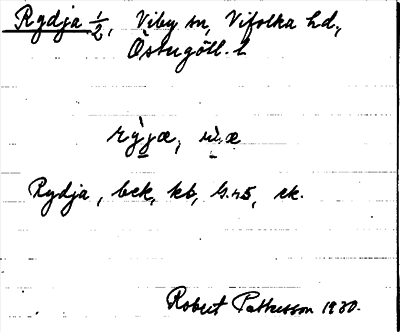 Rydja 1/2, Viby sn, Vifolka hd,
Östergötl. l
rỳjæ,
Rydja, bek, kb, G.nS, ek.
Robert Pettersson 1930.